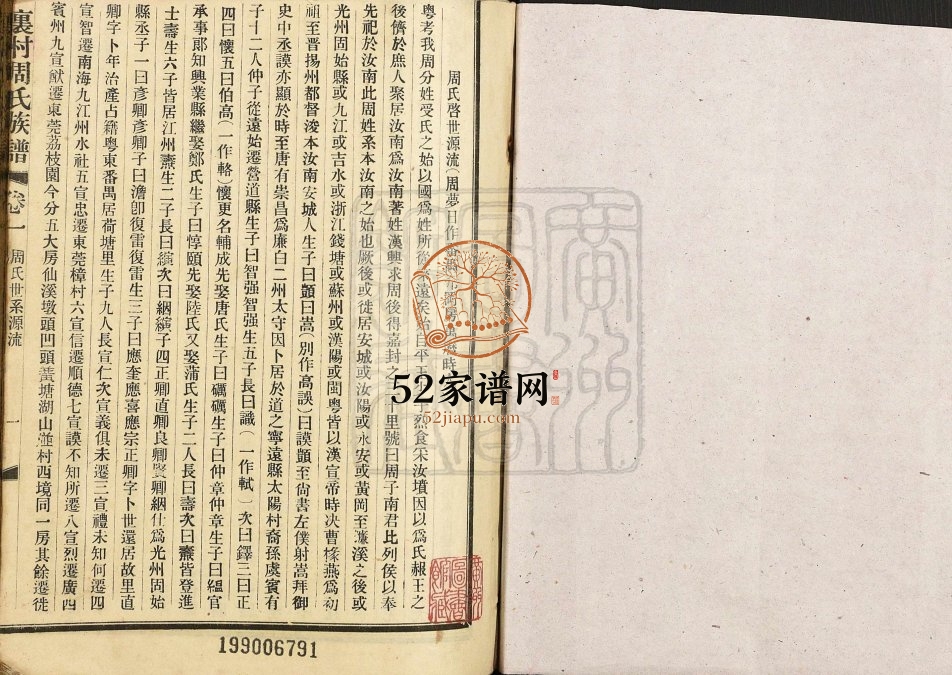 周氏啓世源流（周夢日作
粵考我周分姓受氏之始以國爲姓所從 遠矣始自平王 烈食采汝墳因以爲氏赧王之
後儕於庶人聚居汝南爲汝南著姓漢興求周後得嘉封之三十里號曰周子南君比列侯以奉
先祀於汝南此周姓系本汝南之始也厥後或徙居安城或汝陽或永安或黃岡至濂溪之後或
光州固始縣或九江或吉水或浙江錢塘或蘇州或漢陽或閩粵皆以漢宣帝時决曹掾燕爲初
祖至晋揚州都督浚本汝南安城人生子曰顗曰嵩（別作高誤）曰謨顗至尙書左僕射嵩拜御
史中丞謨亦顯於時至唐有崇昌爲廉白二州太守因卜居於道之寧遠縣太陽村裔孫虞賓有
子十二人仲子從遠始遷營道縣生子曰智强智强生五子長曰識（一作軾）次曰鐸三曰正
四曰懷五曰伯高（一作輅）懷更名輔成先娶唐氏生子曰礪礪生子曰仲章仲章生子曰緼官
承事郞知興業縣繼娶鄭氏生子曰惇頤先娶陸氏又娶蒲氏生子二人長曰壽次曰燾皆登進
士壽生六子皆居江州燾生二子長曰縯次曰絪縯子四正卿直卿良卿賢卿絪仕爲光州固始
縣丞子一曰彥卿彥卿子曰澹卽復雷復雷生三子曰應奎應喜應宗正卿字卜世還居故里直
卿字卜年治產占籍粵東番禺居荷塘里生子九人長宣仁次宣義俱未遷三宣禮未知何遷四
宣智遷南海九江州水社五宣忠遷東莞樟村六宣信遷順德七宣謨不知所遷八宣烈遷廣西
賓州九宣猷遷東莞荔枝園今分五大房仙溪墩頭凹頭黃塘湖山並村西境同一房其餘遷徙
裏村周氏族譜
卷一
周氏世系源流
一
52家谱网
52jiapu.com
199006791